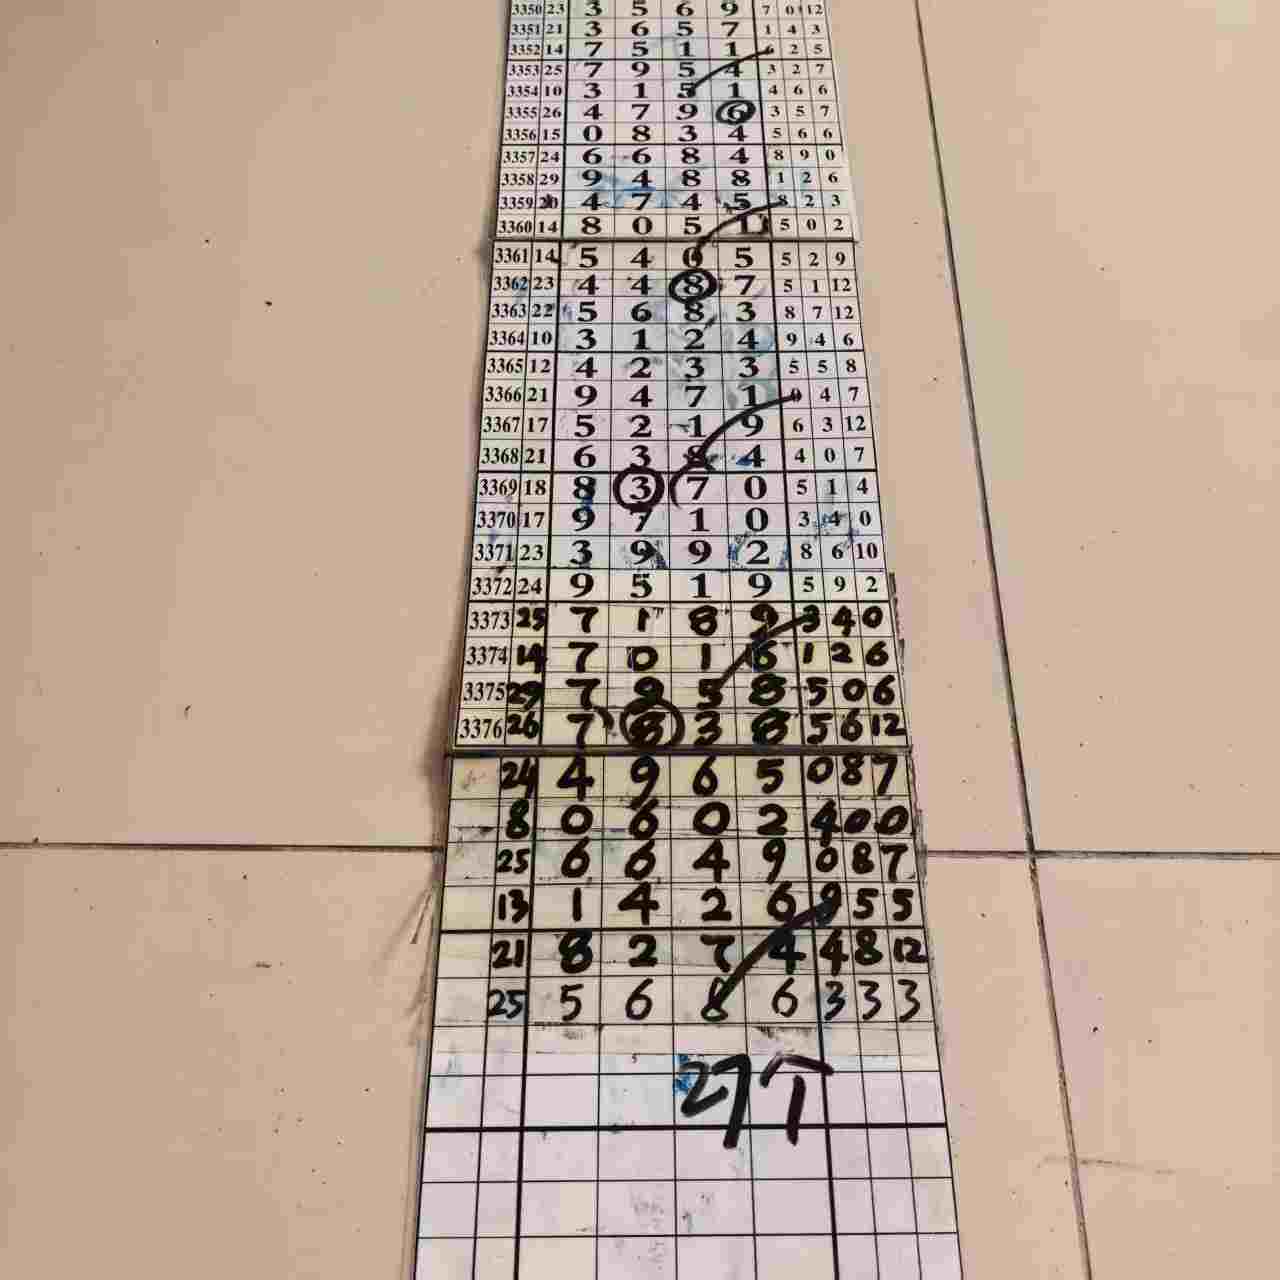 3350 23 3 5 6 9 7 0 12
3351 21 3 6 5 7 1 4 3
3352 14 7 5 1 1 6 2 5
3353 25 7 9 5 4 3 2 7
3354 10 3 1 5 1 4 6 6
3355 26 4 7 9 6 3 5 7
3356 15 0 8 3 4 5 6 6
3357 24 6 6 8 4 8 9 0
3358 29 9 4 8 8 1 2 6
3359 20 4 7 4 5 8 2 3
3360 14 8 0 5 1 5 0 2
3361 14 5 4 0 5 5 2 9
3362 23 4 4 8 7 5 1 12
3363 22 5 6 8 3 8 7 12
3364 10 3 1 2 4 9 4 6
3365 12 4 2 3 3 5 5 8
3366 21 9 4 7 1 0 4 7
3367 17 5 2 1 9 6 3 12
3368 21 6 3 8 4 4 0 7
3369 18 8 3 7 0 5 1 4
3370 17 9 7 1 0 3 4 0
3371 23 3 9 9 2 8 6 10
3372 24 9 5 1 9 5 9 2
3373 25 7 1 8 9 3 4 0
3374 14 7 0 1 6 1 2 6
3375 29 7 9 5 8 5 0 6
3376 26 7 8 3 8 5 6 12
24 4 9 6 5 0 8 7
8 0 6 0 2 4 0 0
25 6 6 4 9 0 8 7
13 1 4 2 6 9 5 5
21 8 2 7 4 4 8 12
25 5 6 8 6 3 3 3
27个